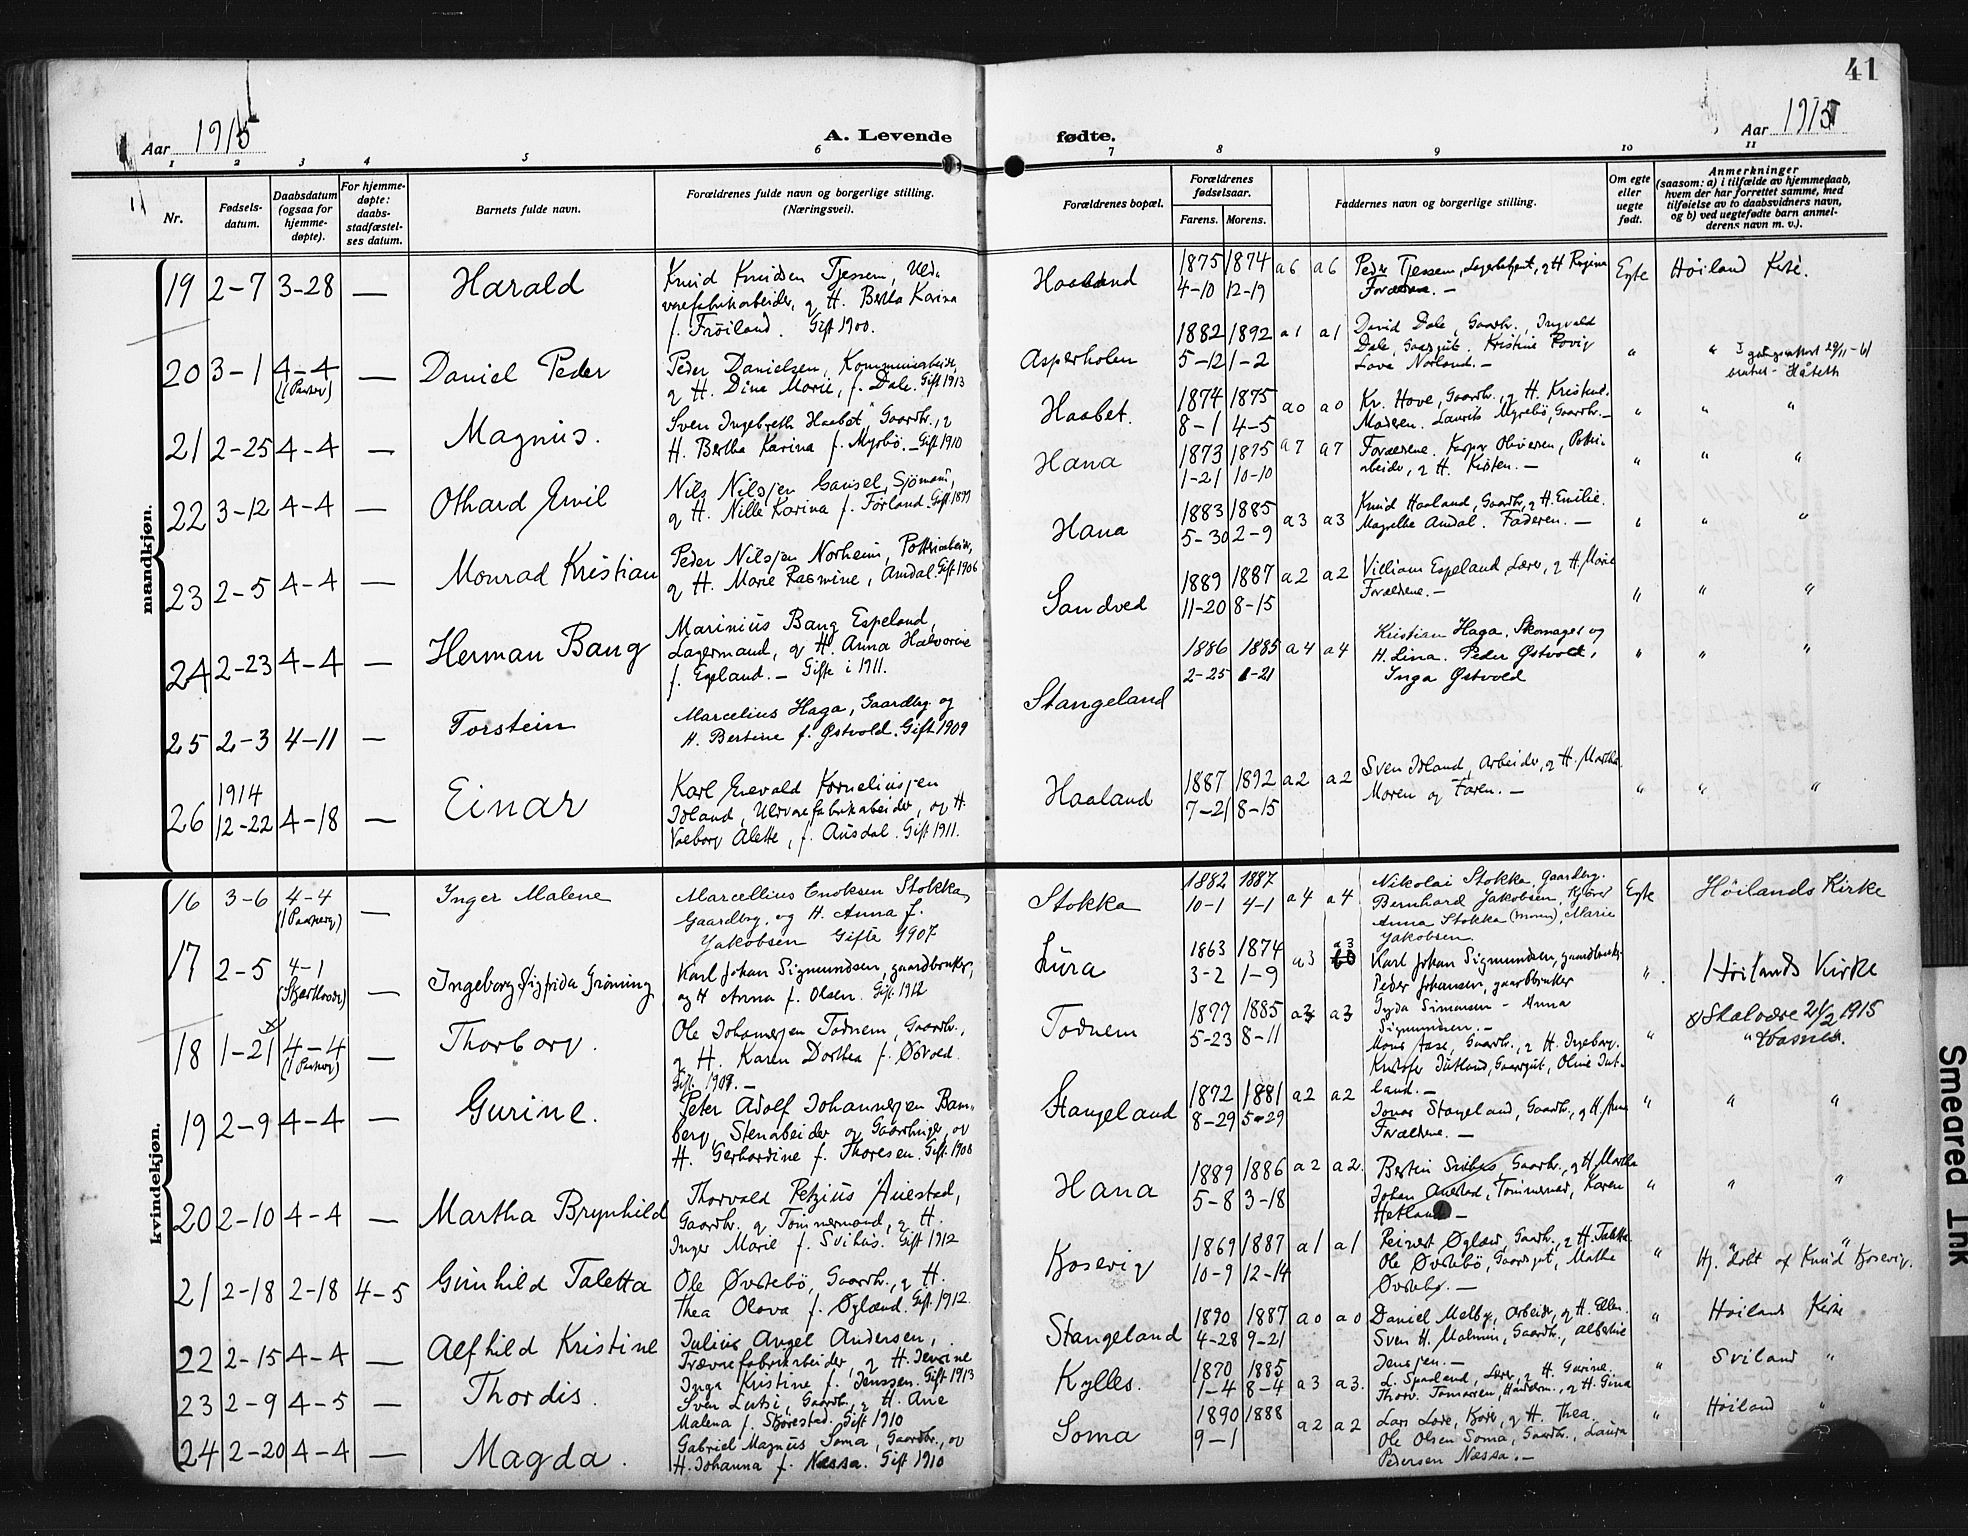 41
Aar 1915
A. Levende fødte.
Aar 1915
1 2 3 4 5 6 7 8 9 10 11
Nr.
Fødsels-
datum.
Daabsdatum
(ogsaa for
hjemme-
døpte).
For hjemme-
døpte:
daabs-
stadfæstel-
ses datum.
Barnets fulde navn.
Forældrenes fulde navn og borgerlige stilling.
(Næringsvei).
Forældrenes bopæl.
Forældrenes
fødselsaar.
Farens. Morens.
Faddernes navn og borgerlige stilling.
Om egte
eller
uegte
født.
Anmerkninger
(saasom: a) i tilfælde av hjemmedaab,
hvem der har forrettet samme, med
tilføielse av to daabsvidners navn,
og b) ved uegtefødte barn anmel-
derens navn m. v.).
mandkjøn.
19 2-7 3-28 — Harald
Knud Knudsen Tjessem, Uld-
varefabrikarbeider, og H. Bertha Karina
f. Frøiland. Gift 1900.
Haaland
1875 1874 a6 a6
4-10 12-19
Peder Tjessem, Lagerbetjent, og H. Regina
Forældrene. —
Egte Höiland Kirke.
20 3-1 4-4 — Daniel Peder
Peder Danielsen, Kommunearbeider,
og H. Dina Marie, f. Dale. Gift 1913
Asperholen
1882 1892 a1 a1
5-12 1-2
David Dale, Gaardbr., Ingvald
Dale, Gaardgut. Kristine Rovig
Lava Norland. —
" "
21 2-25 4-4 — Magnus.
Sven Ingebreth Haabet, Gaardbr., og
H. Bertha Karina f. Myrbø. — Gift 1910
Haabet.
1874 1875 a0 a0
8-1 4-5
Kr. Hove, Gaardbr., og H. Kristine.
Moderen. Laurits Myrebö, Gaardbr. —
" " "
22 3-12 4-4 — Othard Emil
Nils Nilsjen Gausel, Sjömand,
og H. Nille Karina f. Förland. Gift 1899
Hana
1873 1875 a7 a7
1-21 10-10
Forældrene. Kasper Oliversen, Potteri-
arbeider, og H. Kirsten. —
" " "
23 2-5 4-4 — Monrad Kristian
Peder Nilsjen Norheim, Potteriarbeider,
og H. Marie Rasmine, Amdal. Gift 1906
Hana
1883 1885 a3 a3
5-30 2-9
Knud Haaland, Gaardbr., og H. Emilie.
Magrethe Amdal. Faderen. —
" " "
24 2-23 4-4 — Herman Bang
Marinius Bang Espeland,
Lagermand, og H. Anna Halvorine
f. Egeland. — Gifte i 1911.
Sandved
1889 1887 a2 a2
11-20 8-15
Villiam Espeland, Lærer, og H. Marie
Forældrene. —
" " "
25 2-3 4-11 — Torstein
Marcelius Haga, Gaardbr. og
H. Bertine f. Østvold. Gift 1909
Stangeland
1886 1885 a4 a4
2-25 1-21
Kristian Haga, Skomager og
H. Lina. Peder Østvold,
Inga Østvold
" " "
26 1914
12-22 4-18 — Einar
Karl Enevald Korneliusjen
Island, Uldvarefabrikarbeider, og H.
Valborg Alette, f. Ausdal. Gift 1911.
Haaland
1887 1892 a2 a2
7-21 8-15
Sven Island, Arbeider, og H. Martha.
Moren og Faren. —
" " "
kvindekjøn.
16 3-6 4-4 — Inger Malene
Marcellius Enoksen Stokka,
Gaardbr. og H. Anna f.
Jakobsen Gifte 1907
Stokka
1882 1887 a4 a4
10-1 4-1
Nikolai Stokka, Gaardbr.
Bernhard Jakobsen,
Anna Stokka (Moren), Marie
Jakobsen
Egte Höilands Kirke
17 2-5 4-1 — Ingeborg Sigfrida Grøning
(Skjærtorsdag)
Karl Johan Sigmundsen, gaardbruker,
og H Anna f. Olsen. Gift 1912
Lura
1863 1874 a3 a3
3-2 1-9
Karl Johan Sigmundsen, gaardbruker
Peder Johansen, gaardbruker
Gyda Simonsen - Anna
Sigmundsen. —
" Höilands Kirke
18 1-21 4-4 — Thorborg.
Ole Johannesjen Todnem, Gaardbr.,
og H. Karen Dorthea f. Østvold.
Gift 1909. —
Todnem
1877 1885 a3 a3
5-23 8-11
Mons Aase, Gaardbr., og H. Ingeborg.
Kristofer Jutland, Gaardgut, Oline Jut-
land. —
" Skalvære 21/2 1915
19 2-9 4-4 — Gurine.
Peter Adolf Johannesjen Bam-
berg, Stenarbeider og Gaardbruger, og
H. Gerhardine f. Thoresen. Gift 1900
Stangeland
1872 1881 a2 a2
8-29 5-29
Jonas Stangeland, Gaardbr., og H. Anna
Forældrene. —
" " "
20 2-10 4-4 — Martha Brynhild
Thorvald Petzius Auestad,
Gaardbr. og Tömmermand, og H.
Inger Marie f. Svihus. Gift 1912
Hana
1889 1886 a2 a2.
5-8 3-18
Bertin Svihus, Gaardbr., og H. Martha
Johan Auestad, Tömmermand, Karen
Hetland —
" " "
21 2-18 2-18 4-5 Gunhild Taletta
Ole Øvstebö, Gaardbr., og H.
Thea Olava f. Øglænd. Gift 1912.
Kosevig
1869 1887 a1 a1
10-9 12-14
Reinert Øglænd, Gaardbr., og H. Taletta.
Ole Øvstebö, Gaardgut, Malha
Øvstebö. —
" Hj. døbt af Knud Kosevig.
22 2-15 4-4 — Alfhild Kristine
Julius Angel Andersen,
Trævarefabrikarbeider, og H. Jensine
Inga Kristine f. Jenssen. Gift 1913
Stangeland
1890 1887 a0 a0
4-28 9-21
Daniel Melby, Arbeider, og H. Ellen.
Sven H. Malmin, Gaardbr., Albertine
Jensjen. —
" Höiland Kirke
23 2-9 4-5 — Thordis.
Sven Lutsi, Gaardbr., og H. Ane
Malena f. Skjørestad. Gift 1910
Kylles.
1870 1885 a3 a3.
1-4 8-4
L. Spødland, Lærer, og H. Gurine.
Thorv. Tomassen, Handelsm., og H. Gina
" Sviland "
24 2-20 4-4 — Magda.
Gabriel Magnus Soma, Gaardbr., og
H. Johanna f. Næssa. Gift 1910
Soma
1890 1888 a2 a2
9-1
Lars Lore, og H. Thea.
Ole Olsen Soma, Gaardbr., Laura
Pedersen Næssa. —
" Höiland "
Smeared Ink